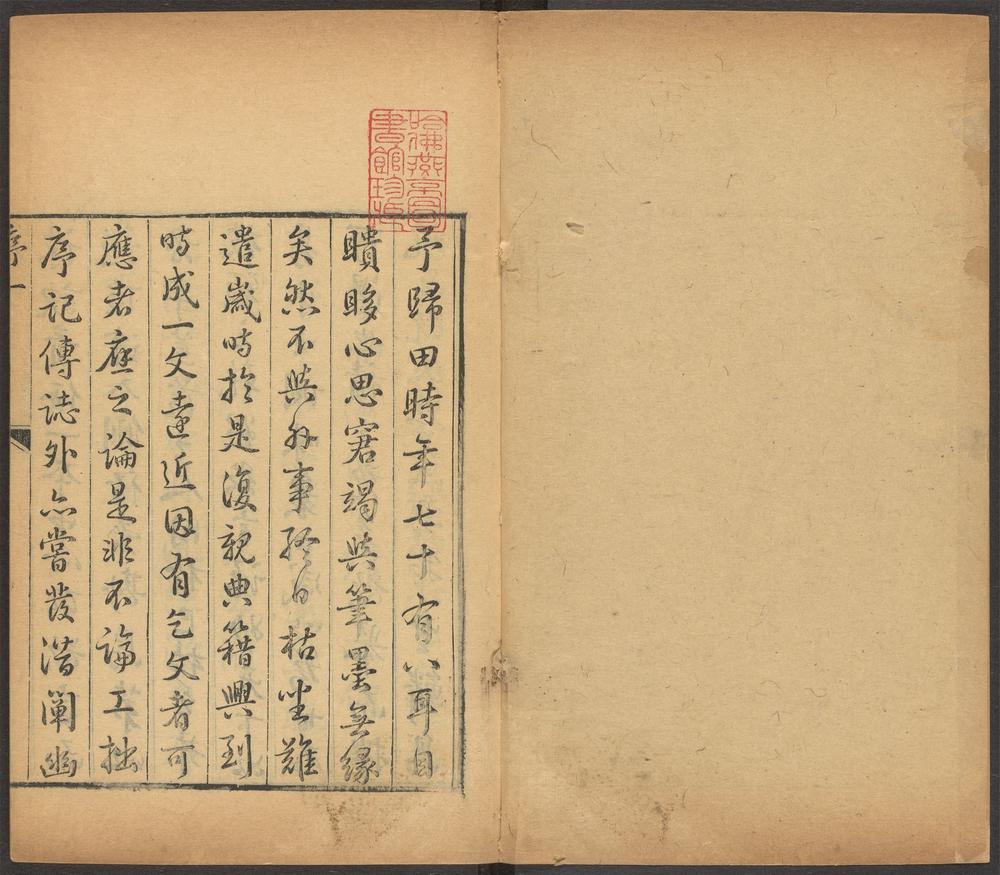 哈佛燕京圖
書館珍藏
予歸田時年七十有八耳目
瞶眵心思窘竭與筆墨無緣
矣然不與外事終日枯坐難
遣歲時於是復親典籍興到
時成一文遠近因有乞文者可
應者應之論是非不論工拙
序記傳誌外亦嘗發潛闡幽
序一